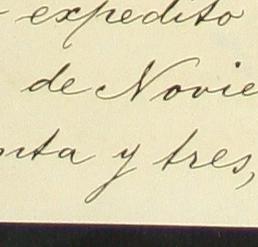 expedito
de Novie
nta y tres,